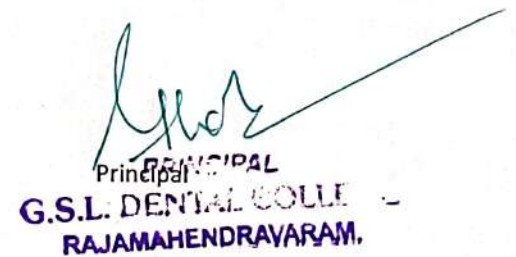 Principal
PRINCIPAL
G.S.L. DENTAL COLLE
RAJAMAHENDRAVARAM.